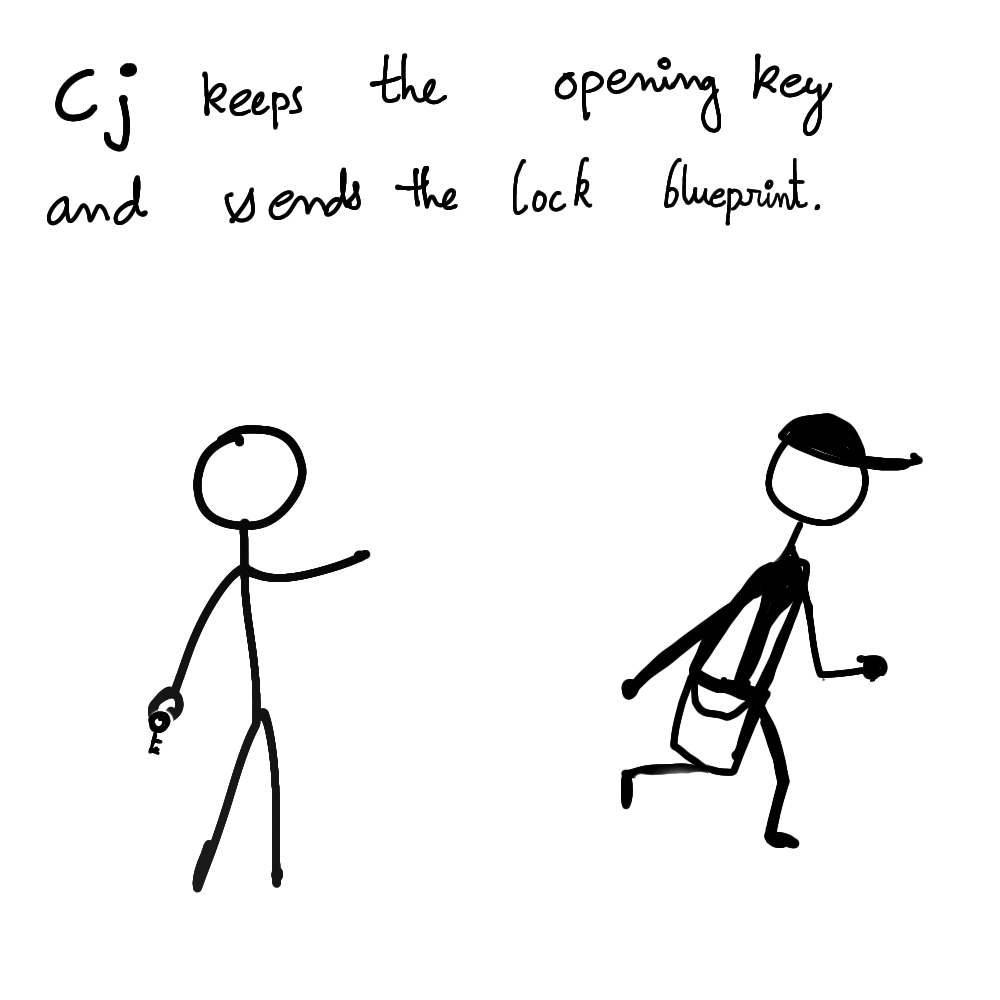 Cj keeps the opening key
and sends the lock blueprint.